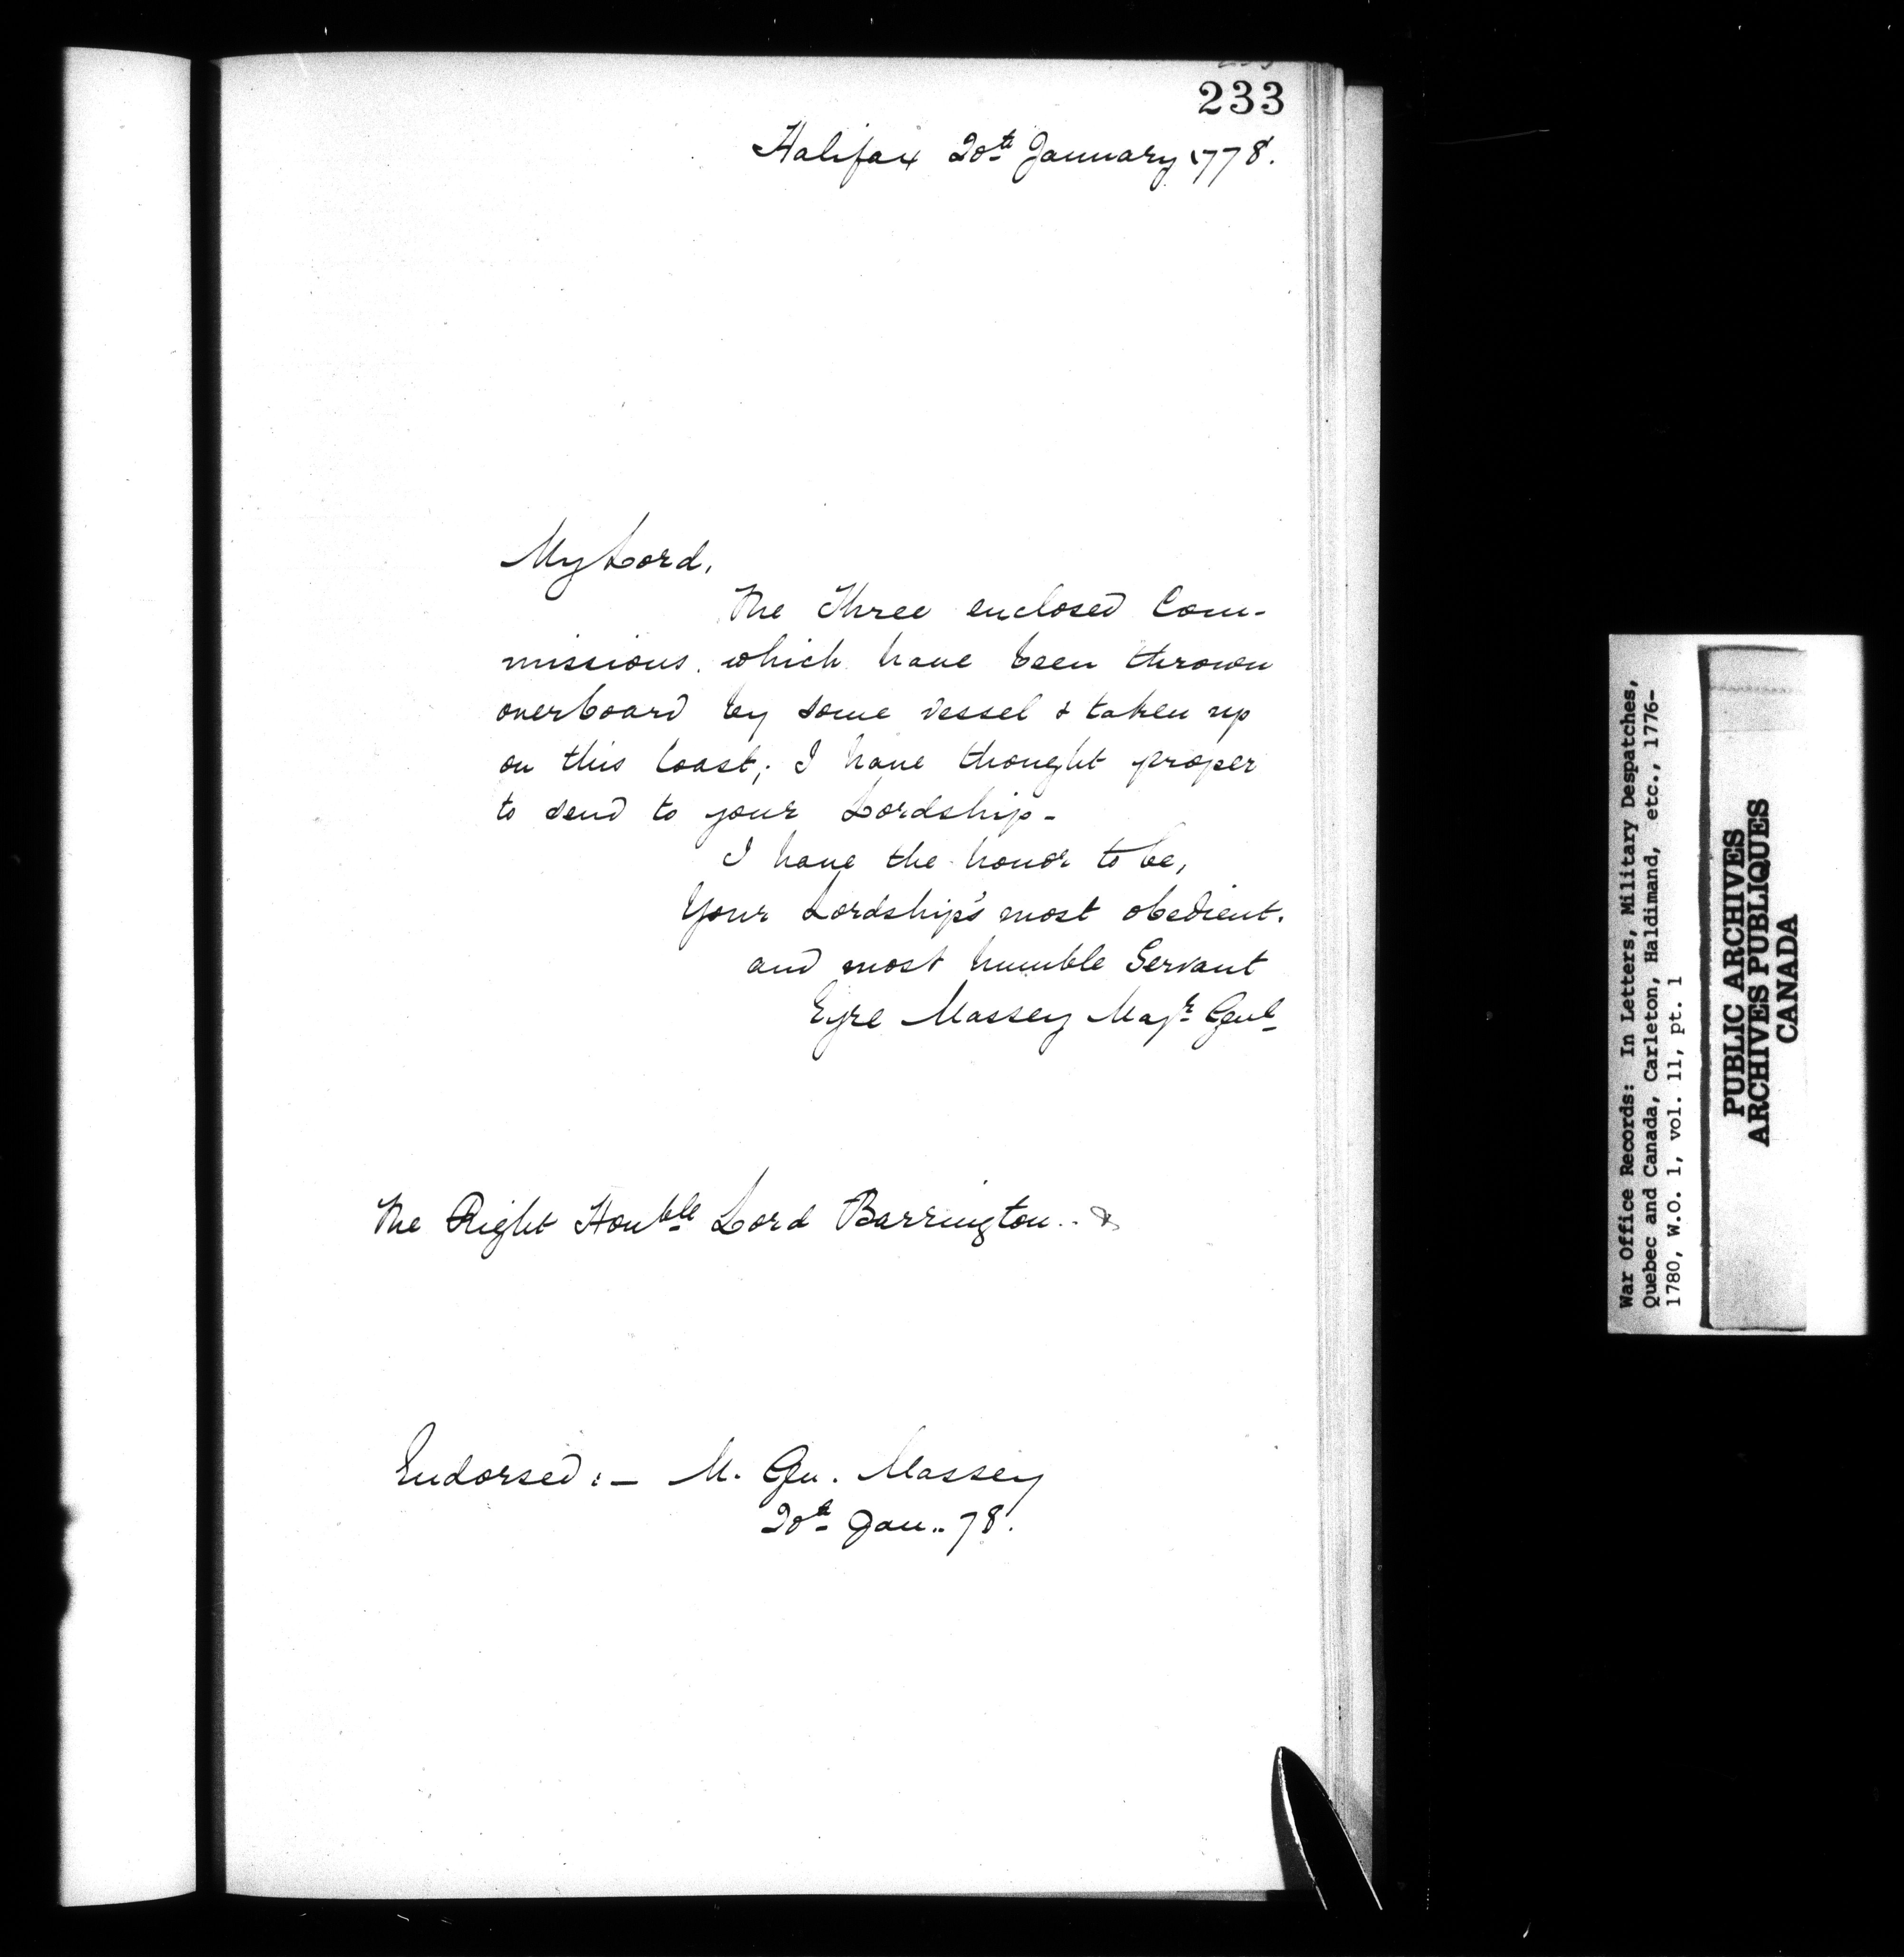 233
Halifax 20th January 1778.
My Lord,
The Three enclosed Com-
missions which have been thrown
overboard by some vessel & taken up
on this Coast; I have thought proper
to send to your Lordship-
I have the honor to be,
Your Lordship's most obedient.
and most humble Servant
Eyre Massey Majr Genl
The Right Honble Lord Barrington..&
Endorsed:- M. Gen. Massey
20th Jan.. 78.
War Office Records: In Letters, Military Despatches,
Quebec and Canada, Carleton, Haldimand, etc., 1776-
1780, W.O. 1, vol. 11, pt. 1
PUBLIC ARCHIVES
ARCHIVES PUBLIQUES
CANADA